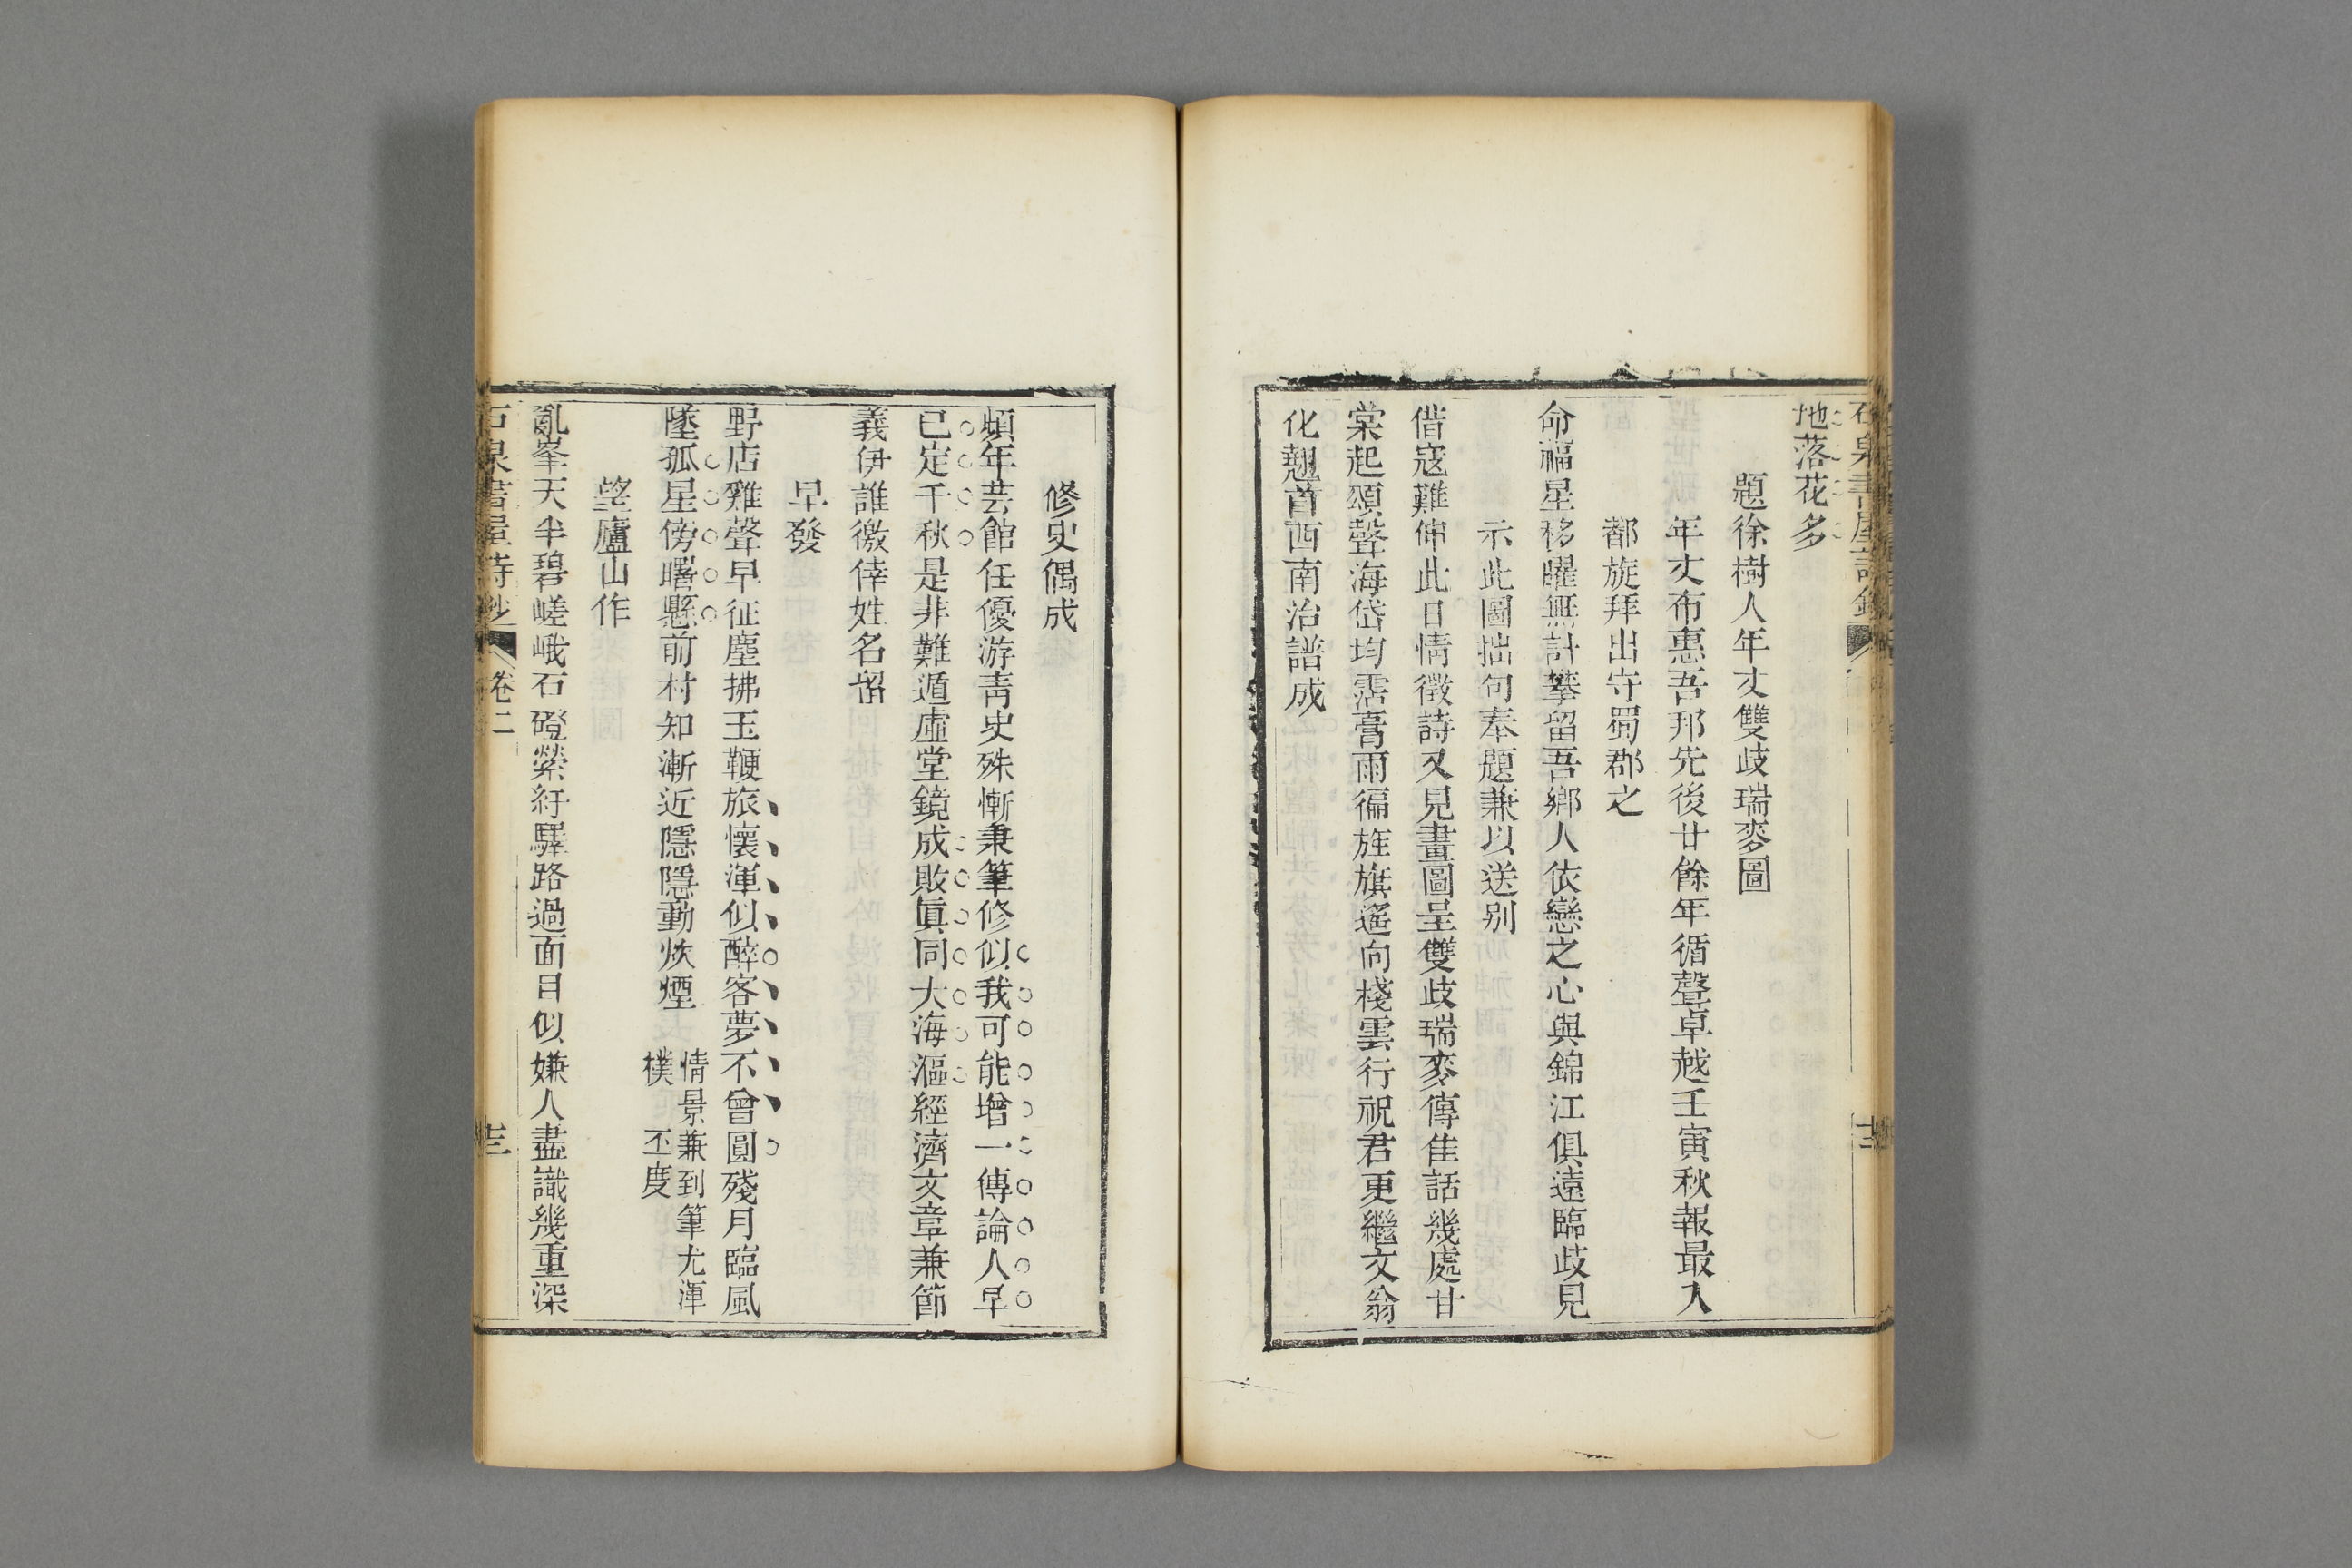 地落花多
題徐樹人年丈雙歧瑞麥圖
年丈布惠吾邦先後廿餘年循聲卓越壬寅秋報最入
都旋拜出守蜀郡之
命福星移曜無計攀留吾鄉人依戀之心與錦江俱遠臨歧見
示此圖拙句奉題兼以送別
借寇難伸此日情徵詩又見畫圖呈雙歧瑞麥傳佳話幾處甘
棠起頌聲海岱均霑膏雨徧旌旗遙向棧雲行祝君更繼文翁
化翹首西南治譜成
修史偶成
頻年芸館任優游青史殊慚秉筆修似我可能增一傳論人早
已定千秋是非難遁虛堂鏡成敗眞同大海漚經濟文章兼節
義伊誰徼倖姓名留
早發
野店雞聲早征塵拂玉鞭旅懷渾似醉客夢不曾圓殘月臨風
墜孤星傍曙懸前村知漸近隱隱動炊煙
情景兼到筆尤渾
樸 丕度
望廬山作
亂峯天半碧嵯峨石磴縈紆驛路過面目似嫌人盡識幾重深
石泉書屋詩鈔
卷二
十三